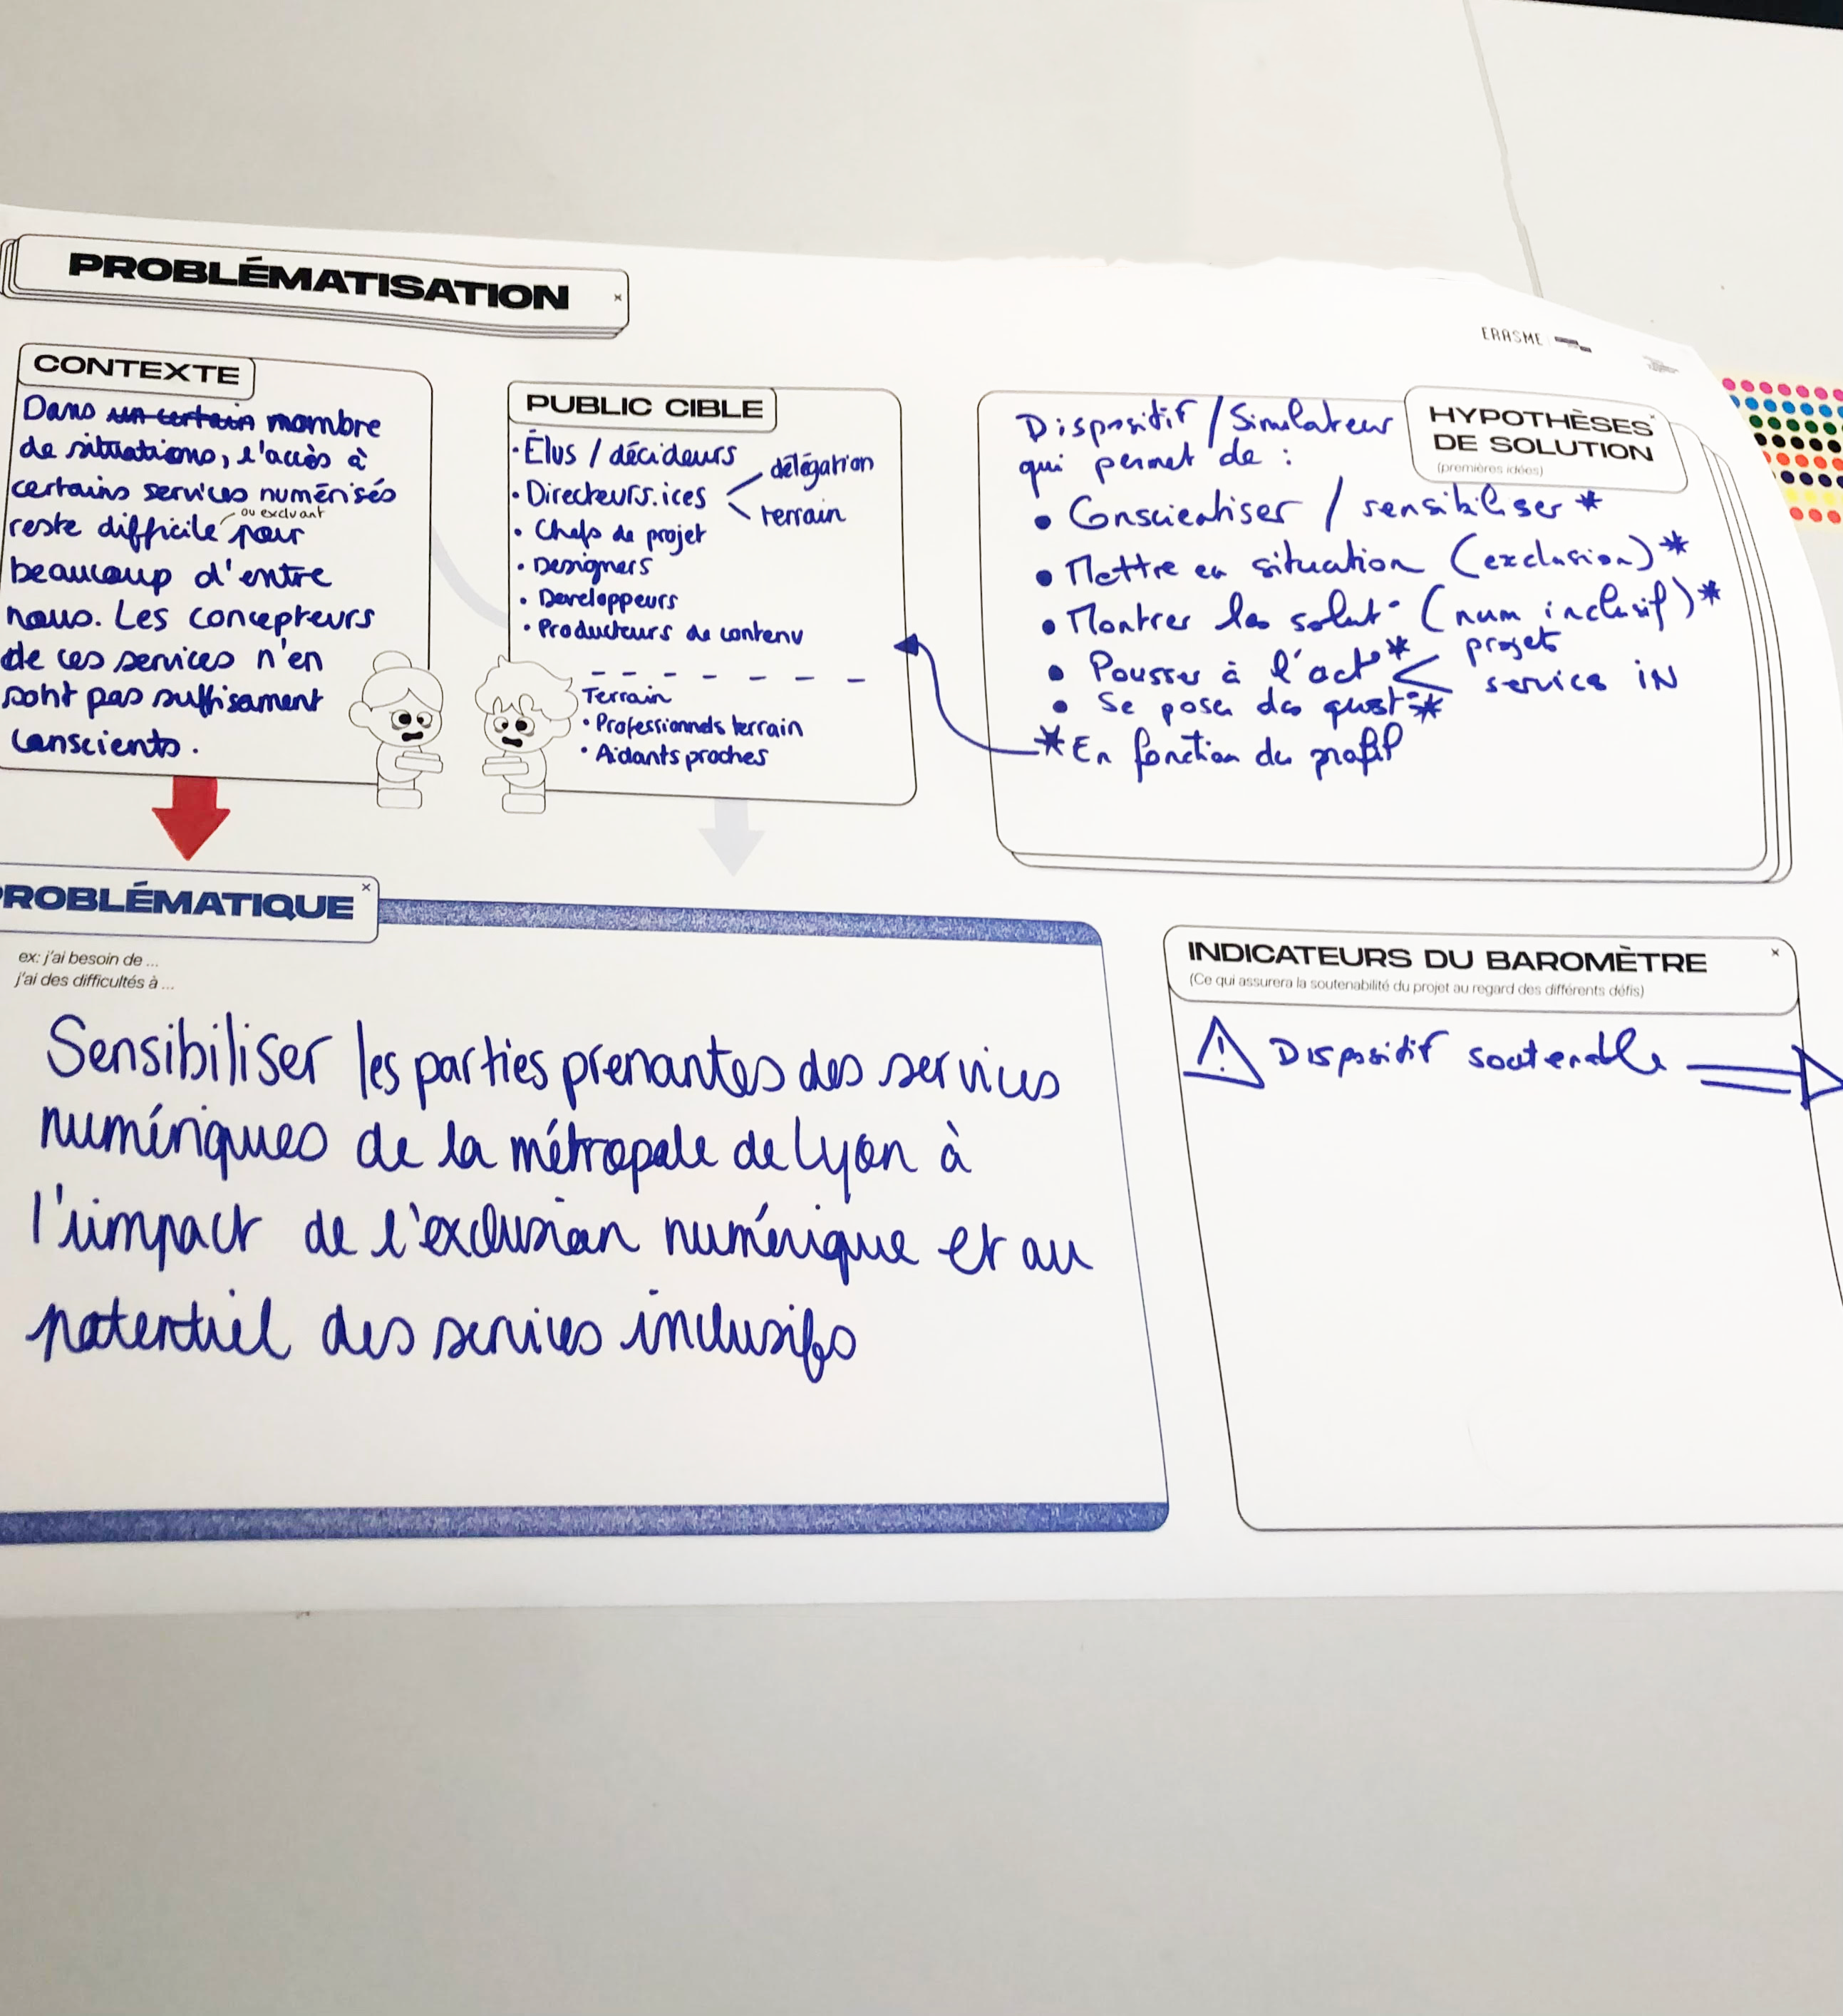 PROBLÉMATISATION
ERASME
CONTEXTE
Dans un certain nombre
de situations, l'accès à
certains services numérisés
ou excluant
reste difficile pour
beaucoup d'entre
nous. Les concepteurs
de ces services n'en
sont pas suffisament
conscients.
PUBLIC CIBLE
• Élus / décideurs
délégation
• Directeurs.ices
terrain
• Chefs de projet
• Designers
• Developpeurs
• Producteurs de contenu
Terrain
• Professionnels terrain
• Aidants proches
HYPOTHÈSES
DE SOLUTION
(premières idées)
Dispositif / Simulateur
qui permet de :
• Conscientiser / sensibiliser *
• Mettre en situation (exclusion) *
• Montrer les solut° (num inclusif) *
• Pousser à l'act° * projet
service IN
• Se poser des quest° *
* En fonction du profil
ROBLÉMATIQUE
ex: j'ai besoin de ...
j'ai des difficultés à ...
Sensibiliser les parties prenantes des services
numériques de la métropole de Lyon à
l'impact de l'exclusion numérique et au
potentiel des services inclusifs
INDICATEURS DU BAROMÈTRE
(Ce qui assurera la soutenabilité du projet au regard des différents défis)
! Dispositif soutenable